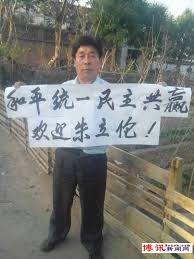 和平统一民主共赢
欢迎朱立伦！
博讯
新闻网